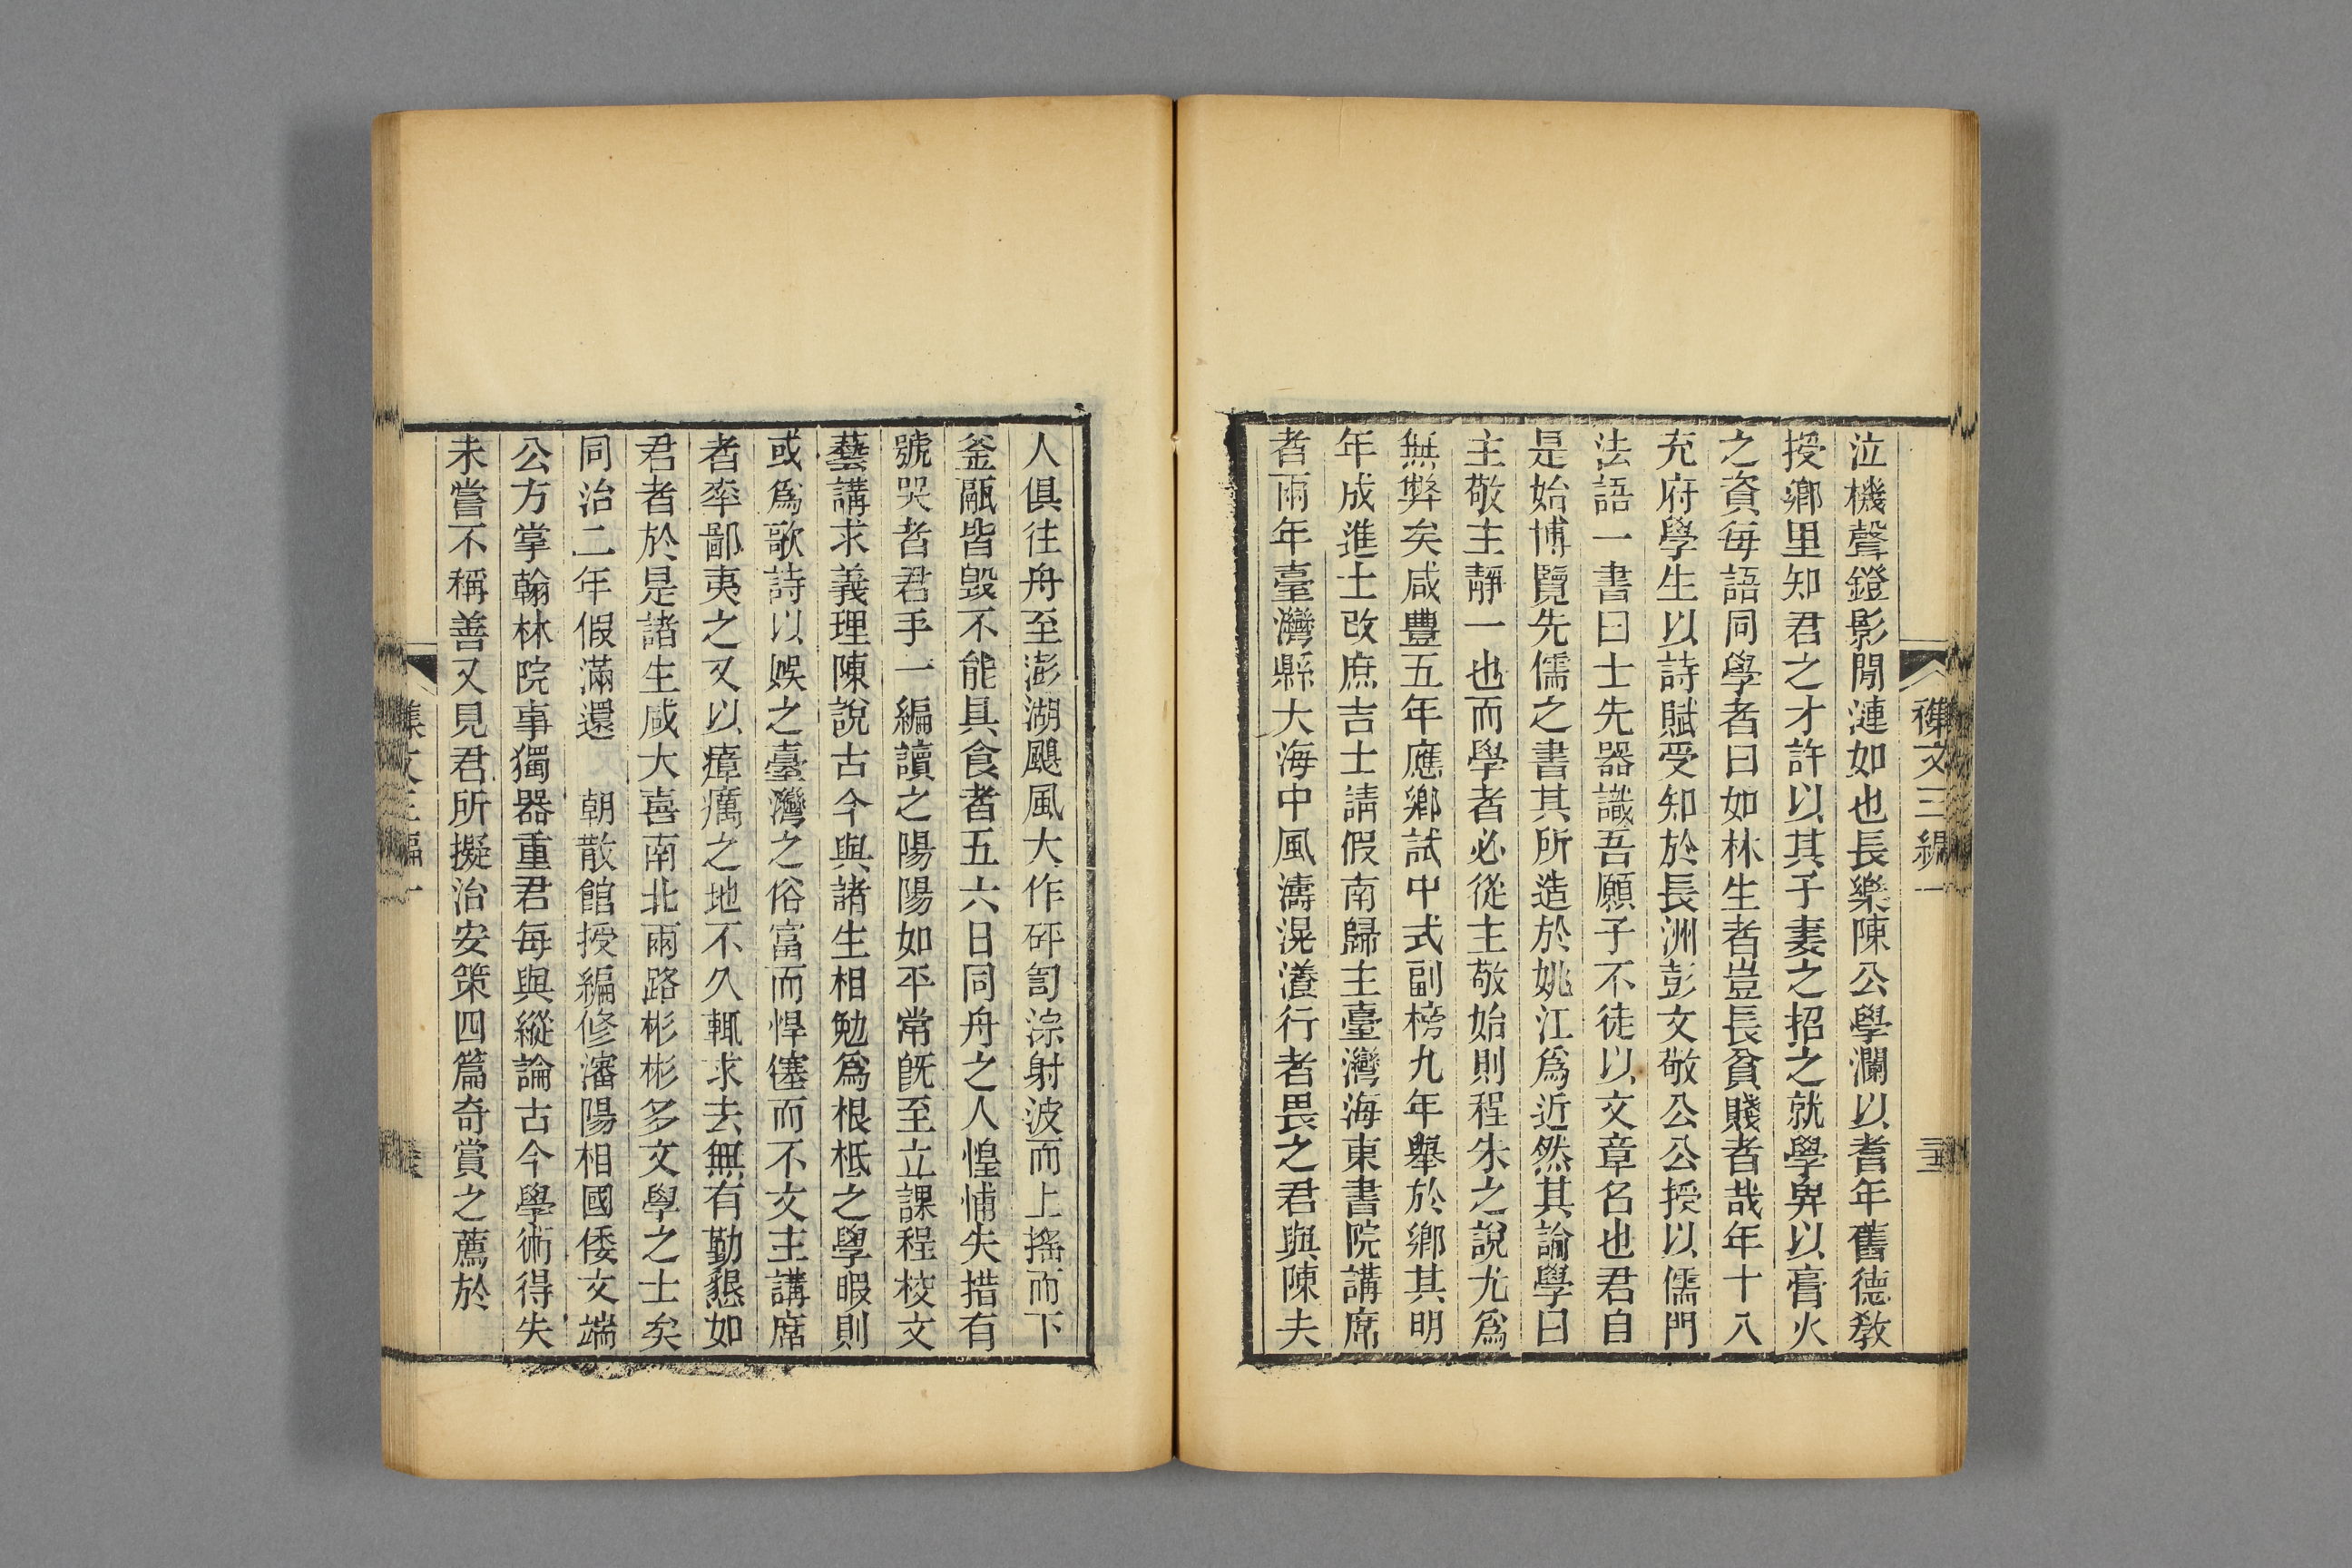 泣機聲鐙影閒漣如也長樂陳公學瀾以耆年舊德教
授鄉里知君之才許以其子妻之招之就學畀以膏火
之資每語同學者曰如林生者豈長貧賤者哉年十八
充府學生以詩賦受知於長洲彭文敬公公授以儒門
法語一書曰士先器識吾願子不徒以文章名也君自
是始博覽先儒之書其所造於姚江為近然其論學曰
主敬主靜一也而學者必從主敬始則程朱之說尤為
無弊矣咸豐五年應鄉試中式副榜九年舉於鄉其明
年成進士改庶吉士請假南歸主臺灣海東書院講席
者兩年臺灣縣大海中風濤滉瀁行者畏之君與陳夫
人俱往舟至澎湖颶風大作砰訇淙射波而上搖而下
釜甌皆毀不能具食者五六日同舟之人惶悑失措有
號哭者君手一編讀之陽陽如平常旣至立課程校文
藝講求義理陳說古今與諸生相勉為根柢之學暇則
或為歌詩以娛之臺灣之俗富而悍僿而不文主講席
者率鄙夷之又以瘴癘之地不久輒求去無有勤懇如
君者於是諸生咸大喜南北兩路彬彬多文學之士矣
同治二年假滿還　朝散館授編修瀋陽相國倭文端
公方掌翰林院事獨器重君每與縱論古今學術得失
未嘗不稱善又見君所擬治安策四篇奇賞之薦於